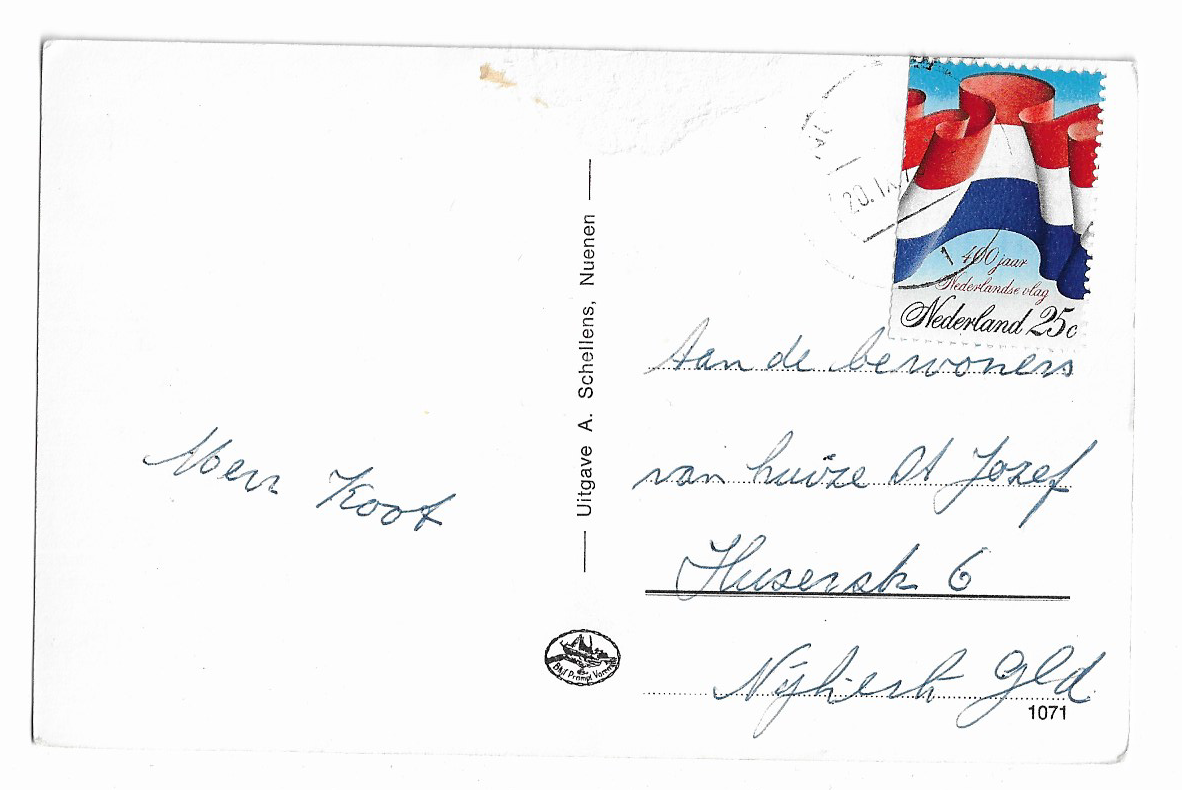 20.IX.7
400 jaar
Nederlandse vlag
Nederland 25c
Uitgave A. Schellens, Nuenen
Mevr Koot
Aan de bewoners
van huize St Jozef
Huserstr 6
Nijkerk Gld
1071